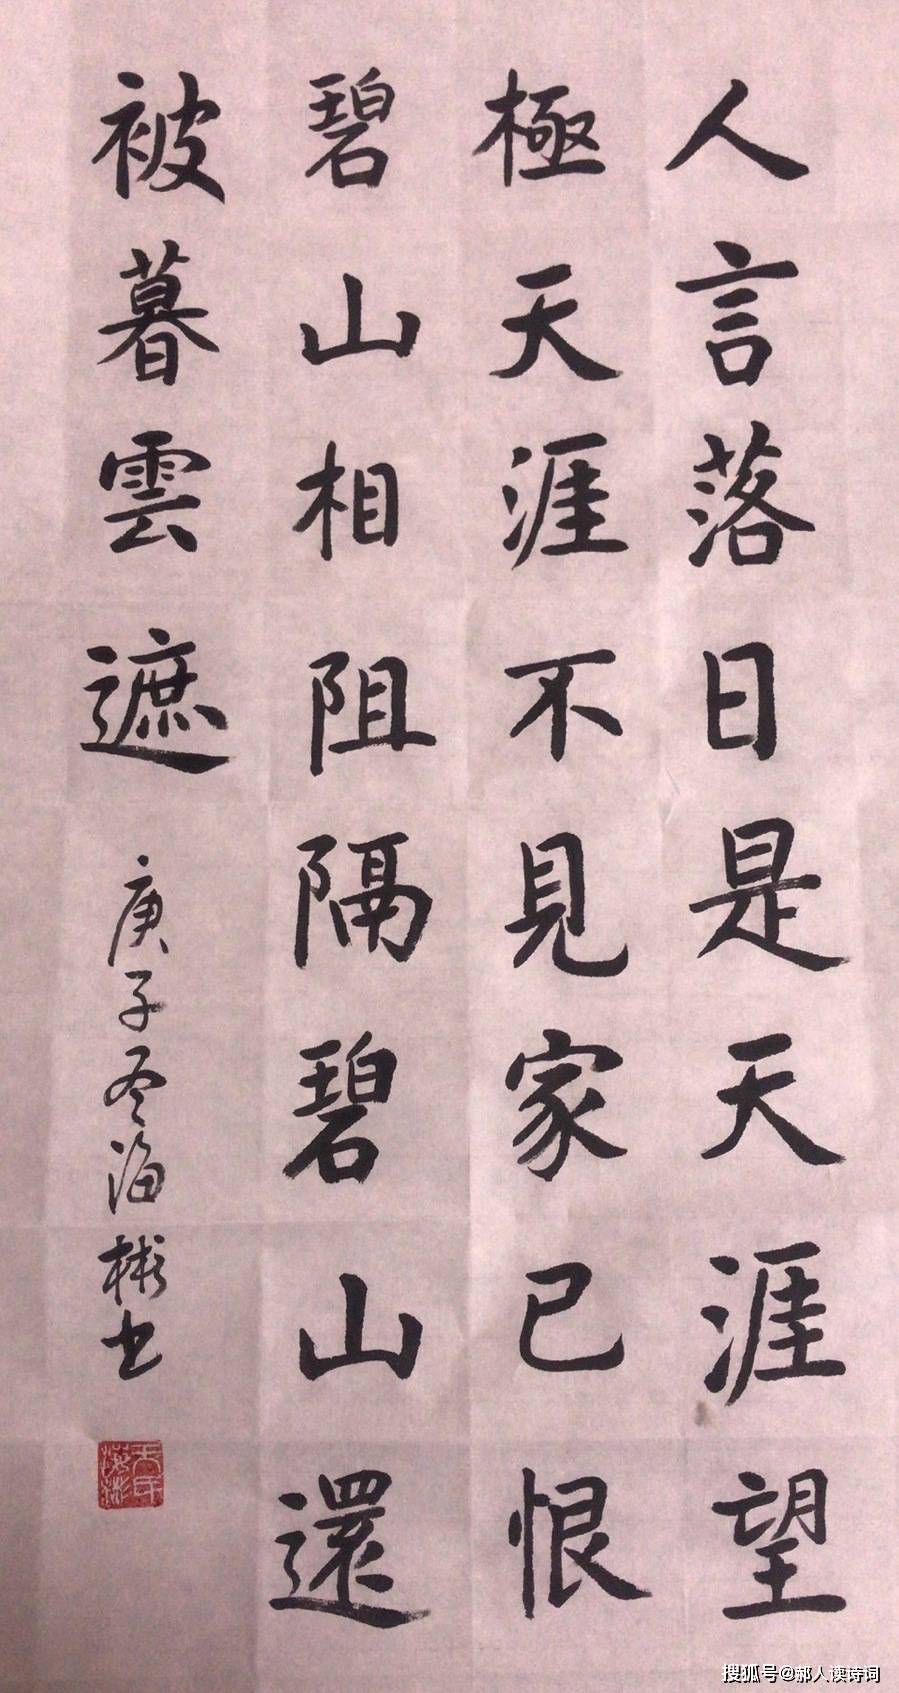 人言落日是天涯望
極天涯不見家已恨
碧山相阻隔碧山還
被暮雲遮
庚子冬海彬书
搜狐号@郝人读诗词